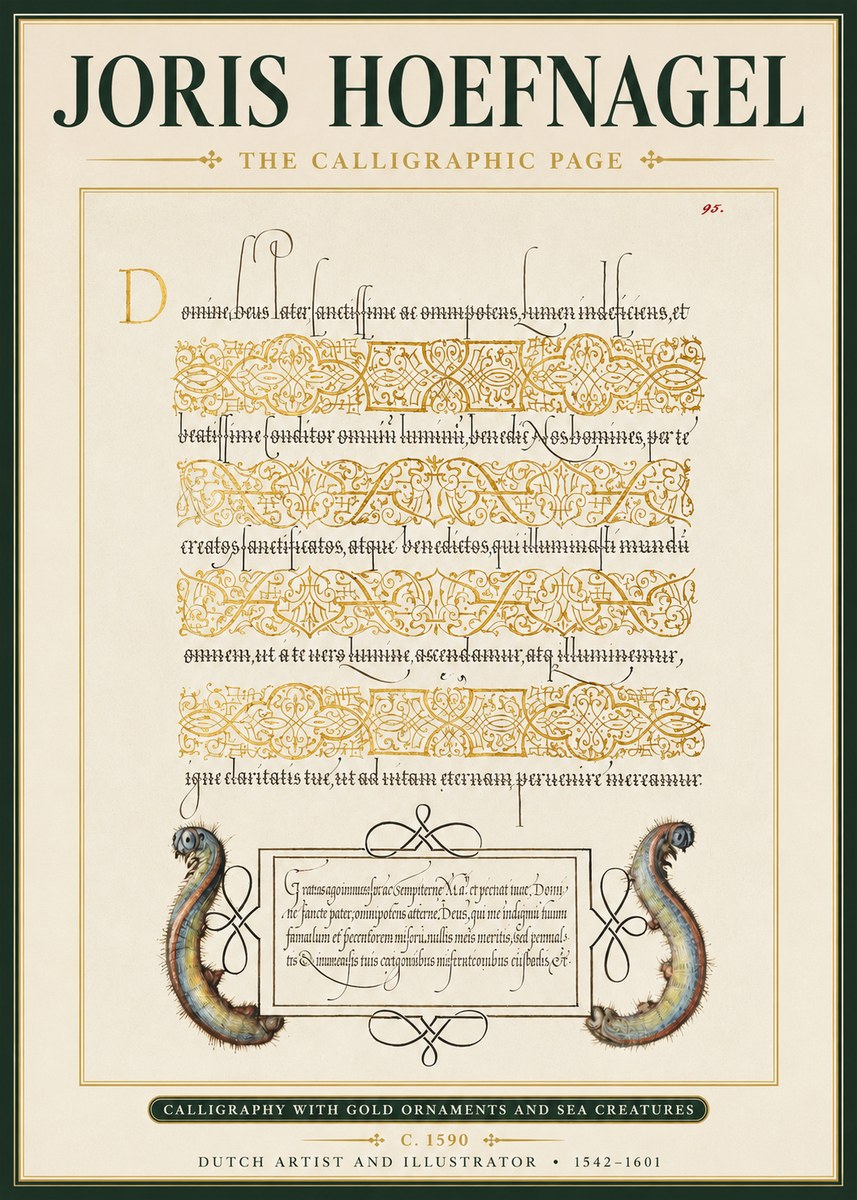 JORIS HOEFNAGEL
THE CALLIGRAPHIC PAGE
95.
Domine, Deus Pater sanctissime ac omnipotens, Lumen indeficiens, et
beatissime Conditor omniũ luminũ, benedic Nos homines, per te
creatos sanctificatos, atque benedictos, qui illuminasti mundũ
omnem, ut a te vero lumine, ascendamur, atq illuminemur,
igne claritatis tue, ut ad uitam eternam, peruenire mereamur.
Gratias
ne sancte pater, omnipotens Deus, qui me
famulum et nullis meis meritis, sed
tis tuis
CALLIGRAPHY WITH GOLD ORNAMENTS AND SEA CREATURES
C. 1590
DUTCH ARTIST AND ILLUSTRATOR • 1542–1601